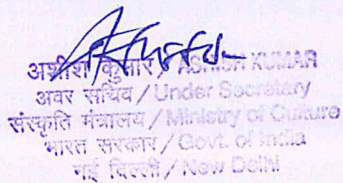 अशीश कुमार / ASHISH KUMAR
अवर सचिव / Under Secretary
संस्कृति मंत्रालय / Ministry of Culture
भारत सरकार / Govt. of India
नई दिल्ली / New Delhi